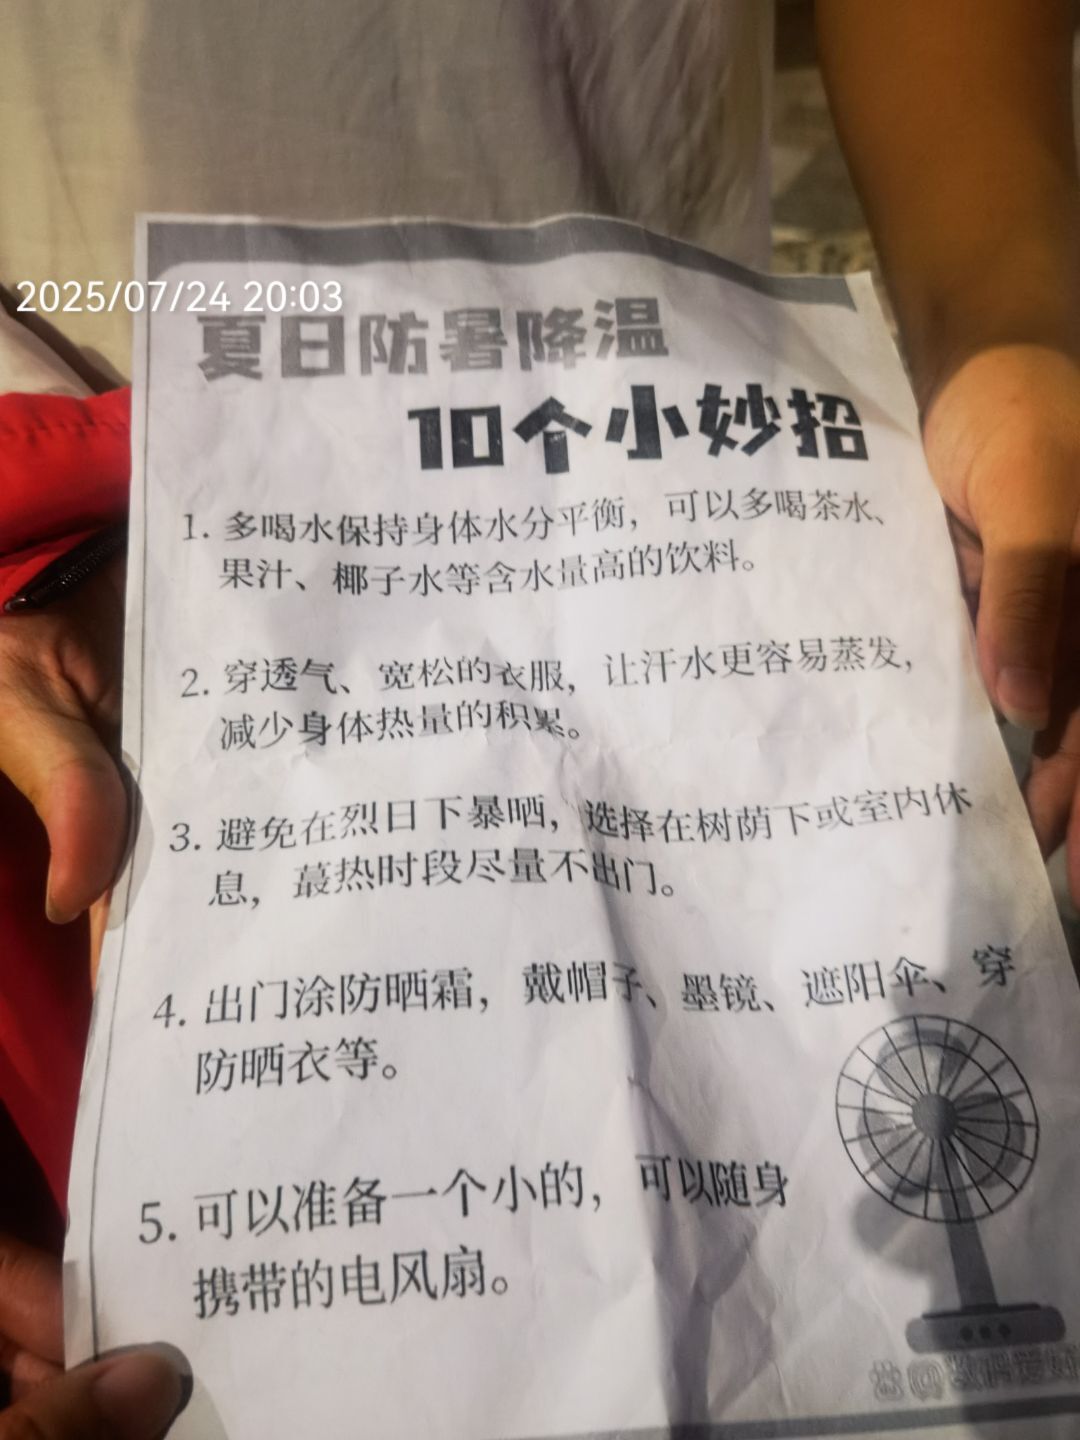 2025/07/24 20:03
夏日防暑降温
10个小妙招
1. 多喝水保持身体水分平衡，可以多喝茶水、
果汁、椰子水等含水量高的饮料。
2. 穿透气、宽松的衣服，让汗水更容易蒸发，
减少身体热量的积累。
3. 避免在烈日下暴晒，选择在树荫下或室内休
息，蕞热时段尽量不出门。
4. 出门涂防晒霜，戴帽子、墨镜、遮阳伞、穿
防晒衣等。
5. 可以准备一个小的，可以随身
携带的电风扇。